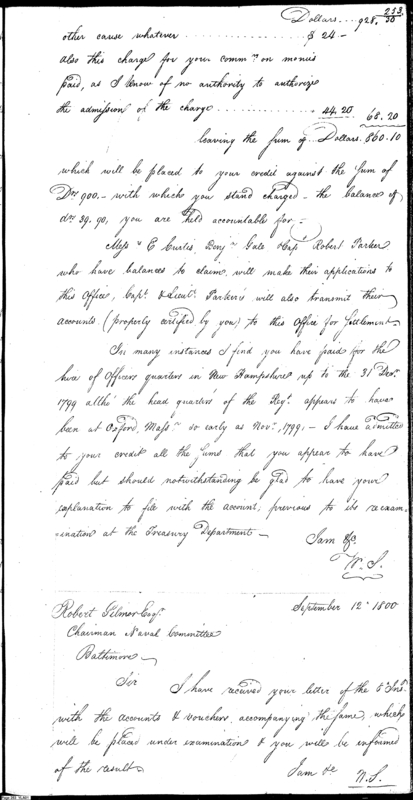 213
Dollars... 928.30
other cause whatever ................ $ 24.-
also this charge for your commn. on monies
paid, as I know of no authority to authorize
the admission of the charge ............... 44.20 68.20
leaving the sum of Dollars. 860.10
which will be placed to your credit against the sum of
Drs. 900.- with which you stand charged - the balance of
drs. 39.90, you are held accountable for.-
Messrs E Curtis, Benjn. Gale & Capt. Robert Parker
who have balances to claim, will make their applications to
this Office, Capt. & Lieut. Parkers will also transmit their
accounts (properly certified by you) to this Office for Settlement.
In many instances I find you have paid for the
hire of Officers quarters in New Hampshire up to the 31 Decr.
1799 altho' the head quarters of the Regt. appears to have
been at Oxford, Masss. so early as Novr. 1799,- I have admitted
to your credit all the sums that you appear to have
paid but should notwithstanding be glad to have your
explanation to file with the account, previous to its reexam-
ination at the Treasury Department -
I am &c.
W. S.
September 12 1800
Robert Gilmor Esqr.
Chairman Naval Committee
Baltimore
Sir
I have received your letter of the 6 Inst.
with the accounts & vouchers accompanying the same, which
will be placed under examination & you will be informed
of the result.
I am &c
W. S.